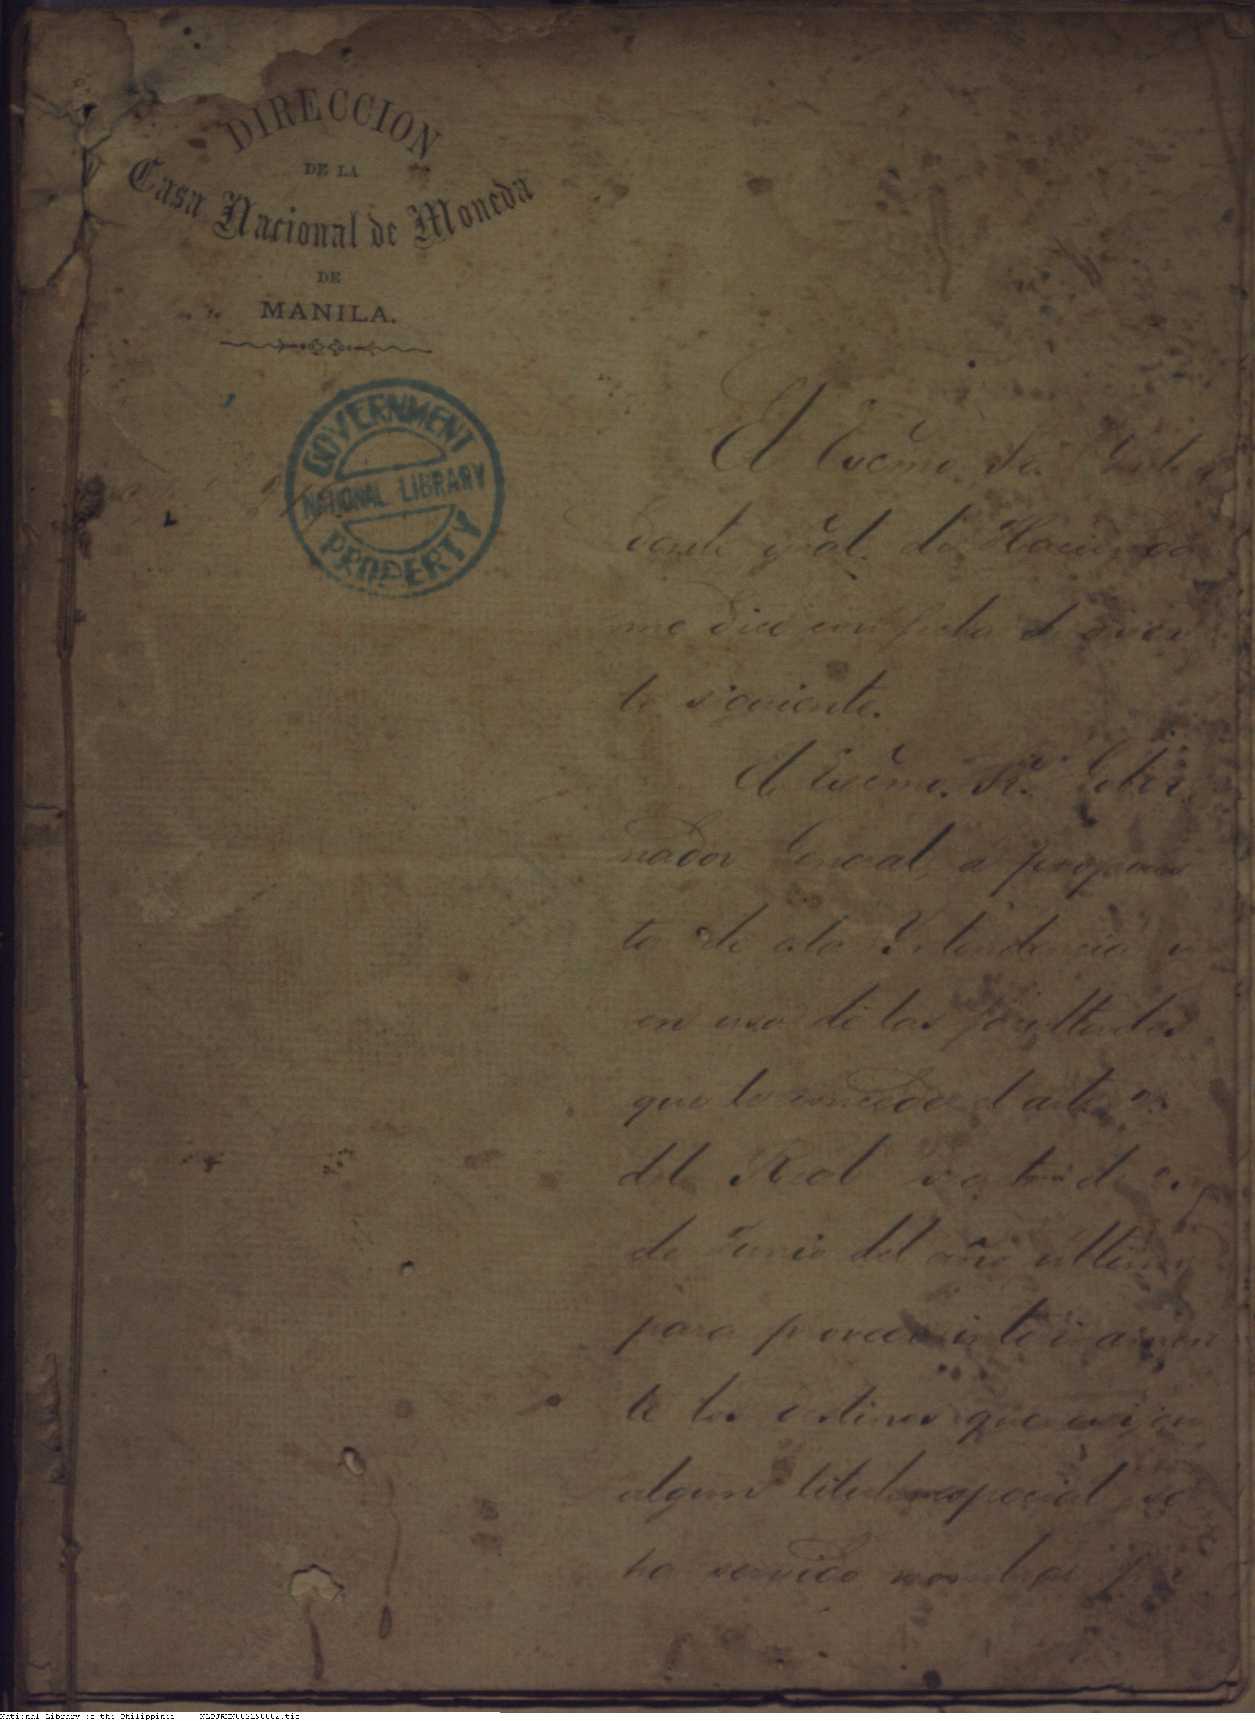 DIRECCION
DE LA
Casa Nacional de Moneda
DE
MANILA.
GOVERNMENT
NATIONAL LIBRARY
PROPERTY
El Excmo. Sr. Inten
dente gral. de Hacienda
me dice con fecha de ayer
lo siguiente.
El Excmo. Sr. Gober
nador General, a propues
ta de esta Intendencia y
en uso de las facultades
que le concede el
del Real de
de Junio del año último
para proveer interinamen
te los destinos que exijen
algun titulo especial, se
ha servido nombrar por
National Library of the Philippines